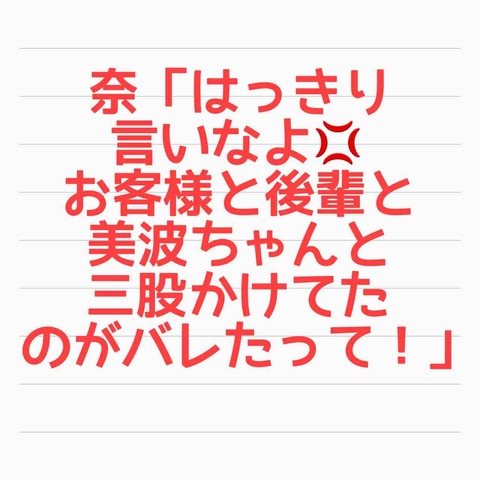 奈「はっきり
言いなよ💢
お客様と後輩と
美波ちゃんと
三股かけてた
のがバレたって！」